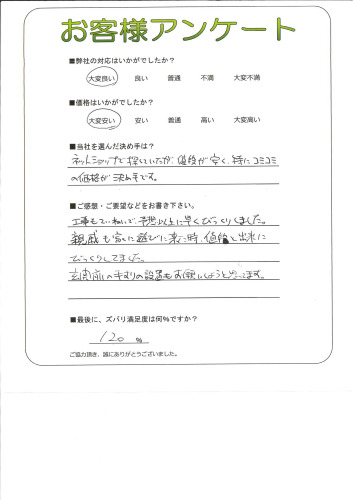 お客様アンケート
■弊社の対応はいかがでしたか？
大変良い 良い 普通 不満 大変不満
■価格はいかがでしたか？
大変安い 安い 普通 高い 大変高い
■当社を選んだ決め手は？
ネットショップで探していたが、価格が安く、特にコミコミ
の価格が決め手です。
■ご感想・ご要望などをお書き下さい。
工事もていねいで、予想以上に早くびっくりしました。
親戚も家に遊びに来た時、値段と出来に
びっくりしてました。
玄関前の手すりの設置もお願いしようと思ってます。
■最後に、ズバリ満足度は何%ですか？
120 %
ご協力頂き、誠にありがとうございました。